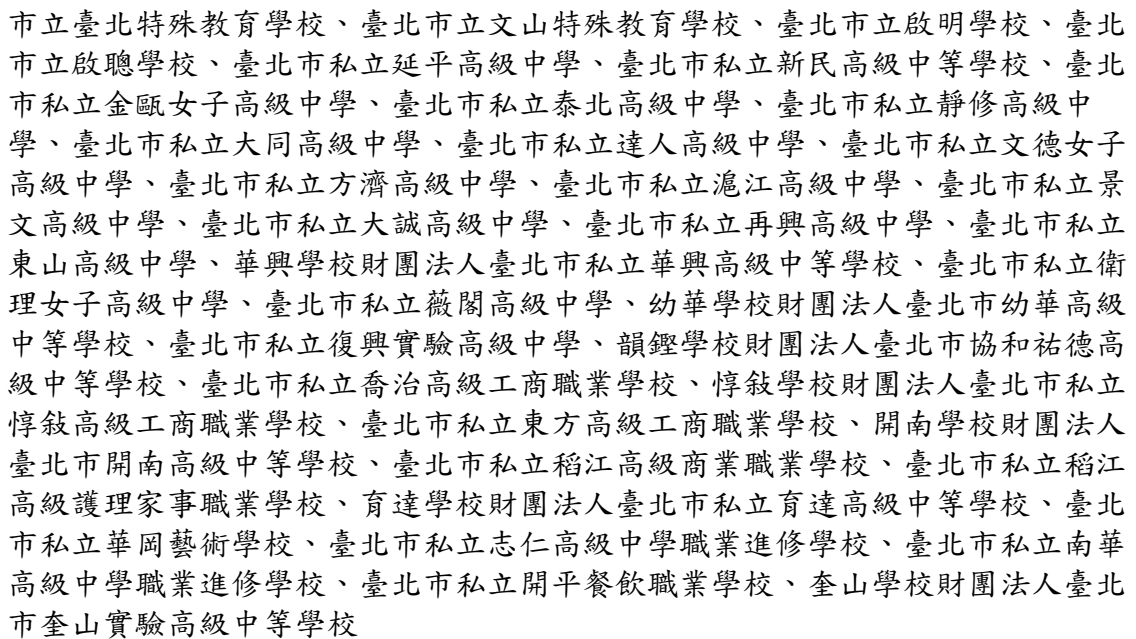 市立臺北特殊教育學校、臺北市立文山特殊教育學校、臺北市立啟明學校、臺北
市立啟聰學校、臺北市私立延平高級中學、臺北市私立新民高級中等學校、臺北
市私立金甌女子高級中學、臺北市私立泰北高級中學、臺北市私立靜修高級中
學、臺北市私立大同高級中學、臺北市私立達人高級中學、臺北市私立文德女子
高級中學、臺北市私立方濟高級中學、臺北市私立滬江高級中學、臺北市私立景
文高級中學、臺北市私立大誠高級中學、臺北市私立再興高級中學、臺北市私立
東山高級中學、華興學校財團法人臺北市私立華興高級中等學校、臺北市私立衛
理女子高級中學、臺北市私立薇閣高級中學、幼華學校財團法人臺北市幼華高級
中等學校、臺北市私立復興實驗高級中學、韻鏗學校財團法人臺北市協和祐德高
級中等學校、臺北市私立喬治高級工商職業學校、惇敍學校財團法人臺北市私立
惇敍高級工商職業學校、臺北市私立東方高級工商職業學校、開南學校財團法人
臺北市開南高級中等學校、臺北市私立稻江高級商業職業學校、臺北市私立稻江
高級護理家事職業學校、育達學校財團法人臺北市私立育達高級中等學校、臺北
市私立華岡藝術學校、臺北市私立志仁高級中學職業進修學校、臺北市私立南華
高級中學職業進修學校、臺北市私立開平餐飲職業學校、奎山學校財團法人臺北
市奎山實驗高級中等學校